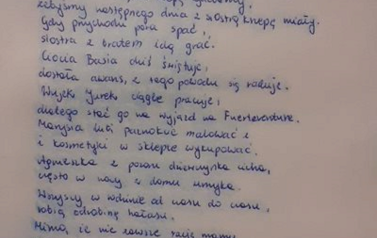 żebyśmy następnego dnia z siostrą krzepę miały.
Gdy przychodzi pora spać,
siostra z bratem idą grać.
Ciocia Basia dziś świętuje,
dostała awans, z tego powodu się raduje.
Wujek Jurek ciągle pracuje,
dlatego stać go na wyjazd na Fuerteventure.
Martyna lubi paznokcie malować
i kosmetyki w sklepie wykupować.
Agnieszka z pozoru dziewczynka cicha,
często w nocy z domu umyka.
Wszyscy w rodzinie od czasu do czasu,
robią odrobinę hałasu.
Mimo, iż nie zawsze